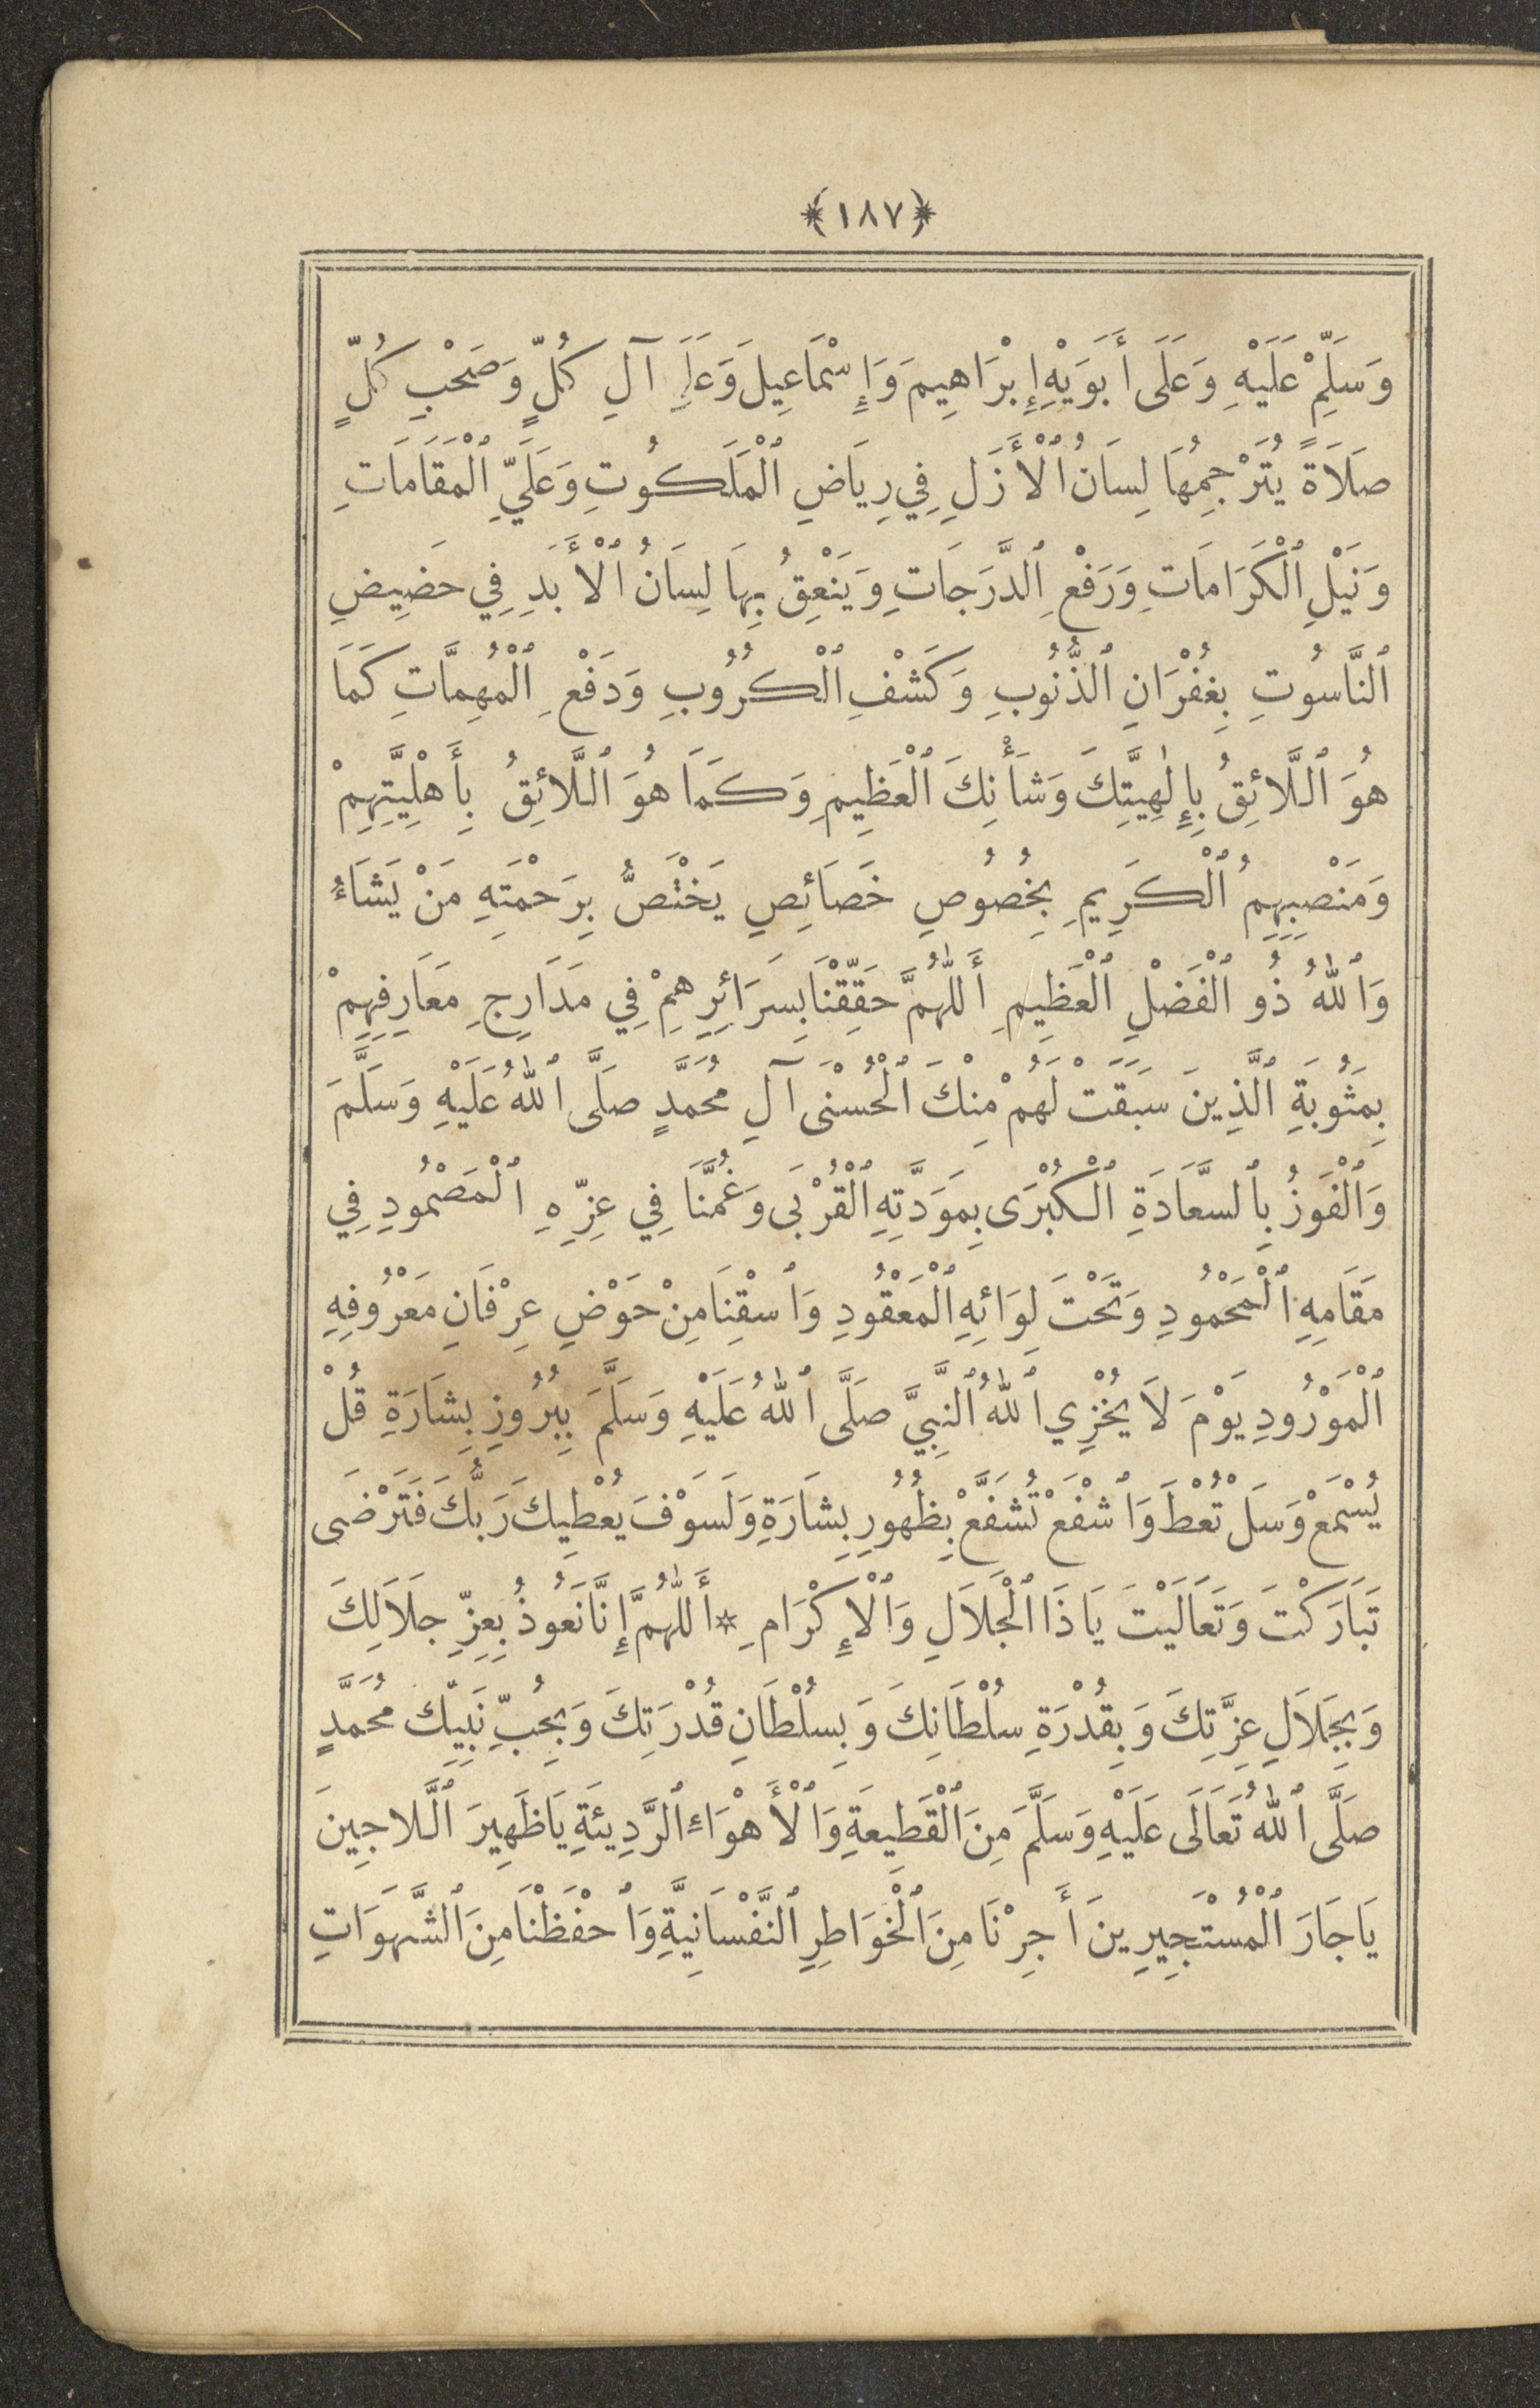 ﴿١٨٧﴾
وَسَلِّمْ عَلَيْهِ وَعَلَى أَبَوَيْهِ إِبْرَاهِيمَ وَإِسْمَاعِيلَ وَعَلَى آلِ كُلٍّ وَصَحْبِ كُلٍّ
صَلَاةً يُتَرْجِمُهَا لِسَانُ ٱلْأَزَلِ فِي رِيَاضِ ٱلْمَلَكُوتِ وَعَلَيِّ ٱلْمَقَامَاتِ
وَنَيْلِ ٱلْكَرَامَاتِ وَرَفْعِ ٱلدَّرَجَاتِ وَيَنْعِقُ بِهَا لِسَانُ ٱلْأَبَدِ فِي حَضِيضِ
ٱلنَّاسُوتِ بِغُفْرَانِ ٱلذُّنُوبِ وَكَشْفِ ٱلْكُرُوبِ وَدَفْعِ ٱلْمُهِمَّاتِ كَمَا
هُوَ ٱللَّائِقُ بِإِلٰهِيَّتِكَ وَشَأْنِكَ ٱلْعَظِيمِ وَكَمَا هُوَ ٱللَّائِقُ بِأَهْلِيَّتِهِمْ
وَمَنْصِبِهِمُ ٱلْكَرِيمِ بِخُصُوصِ خَصَائِصِ يَخْتَصُّ بِرَحْمَتِهِ مَنْ يَشَاءُ
وَٱللّٰهُ ذُو ٱلْفَضْلِ ٱلْعَظِيمِ أَللّٰهُمَّ حَقِّقْنَا بِسَرَائِرِهِمْ فِي مَدَارِجِ مَعَارِفِهِمْ
بِمَثُوبَةِ ٱلَّذِينَ سَبَقَتْ لَهُمْ مِنْكَ ٱلْحُسْنَى آلِ مُحَمَّدٍ صَلَّى ٱللّٰهُ عَلَيْهِ وَسَلَّمَ
وَٱلْفَوْزُ بِٱلسَّعَادَةِ ٱلْكُبْرَى بِمَوَدَّتِهِ ٱلْقُرْبَى وَغُمَّنَا فِي عِزِّهِ ٱلْمَصْمُودِ فِي
مَقَامِهِ ٱلْمَحْمُودِ وَتَحْتَ لِوَائِهِ ٱلْمَعْقُودِ وَٱسْقِنَا مِنْ حَوْضِ عِرْفَانِ مَعْرُوفِهِ
ٱلْمَوْرُودِ يَوْمَ لَا يُخْزِي ٱللّٰهُ ٱلنَّبِيَّ صَلَّى ٱللّٰهُ عَلَيْهِ وَسَلَّمَ بِبُرُوزِ بِشَارَةِ قُلْ
يُسْمَعْ وَسَلْ تُعْطَ وَٱشْفَعْ تُشَفَّعْ بِظُهُورِ بِشَارَةِ وَلَسَوْفَ يُعْطِيكَ رَبُّكَ فَتَرْضَى
تَبَارَكْتَ وَتَعَالَيْتَ يَا ذَا ٱلْجَلَالِ وَٱلْإِكْرَامِ * أَللّٰهُمَّ إِنَّا نَعُوذُ بِعِزِّ جَلَالِكَ
وَبِجَلَالِ عِزَّتِكَ وَبِقُدْرَةِ سُلْطَانِكَ وَبِسُلْطَانِ قُدْرَتِكَ وَبِحُبِّ نَبِيِّكَ مُحَمَّدٍ
صَلَّى ٱللّٰهُ تَعَالَى عَلَيْهِ وَسَلَّمَ مِنَ ٱلْقَطِيعَةِ وَٱلْأَهْوَاءِ ٱلرَّدِيئَةِ يَا ظَهِيرَ ٱللَّاجِينَ
يَا جَارَ ٱلْمُسْتَجِيرِينَ أَجِرْنَا مِنَ ٱلْخَوَاطِرِ ٱلنَّفْسَانِيَّةِ وَٱحْفَظْنَا مِنَ ٱلشَّهَوَاتِ